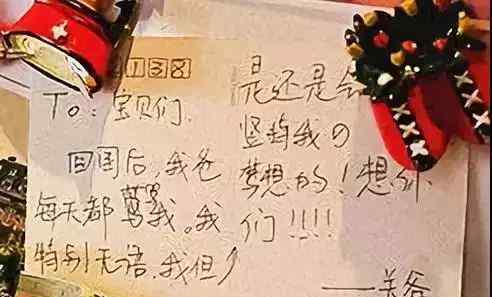 138
To: 宝贝们.
回国后,我爸
每天都骂我。我
特别无语,我但
是还是会
坚持我の
梦想的!想你
们!!!!
——关爷